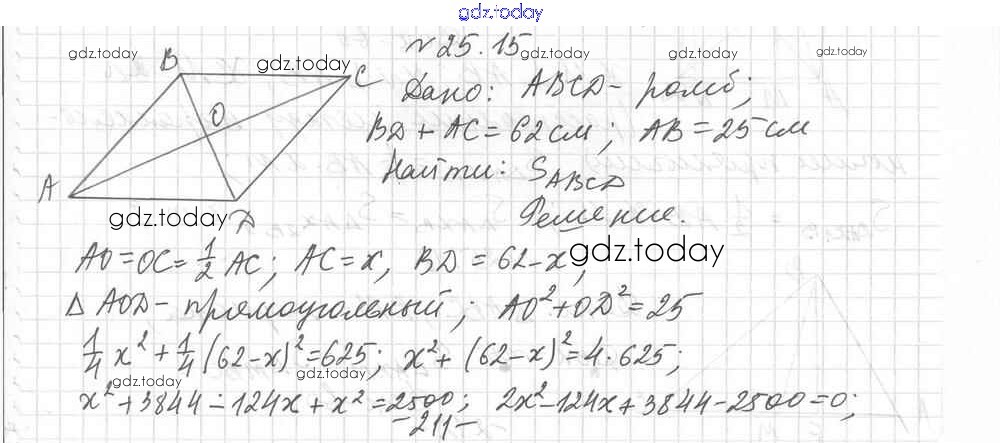 gdz.today
№ 25.15
gdz.today gdz.today gdz.today gdz.today gdz.today
B C O A D
Дано: ABCD - ромб;
BD + AC = 62 см; AB = 25 см
Найти: S_ABCD
gdz.today
Решение.
gdz.today
AO = OC = 1/2 AC; AC = x, BD = 62-x,
Δ AOD - прямоугольный; AO² + OD² = 25
1/4 x² + 1/4 (62-x)² = 625; x² + (62-x)² = 4·625;
gdz.today gdz.today
x² + 3844 - 124x + x² = 2500; 2x² - 124x + 3844 - 2500 = 0;
-211-